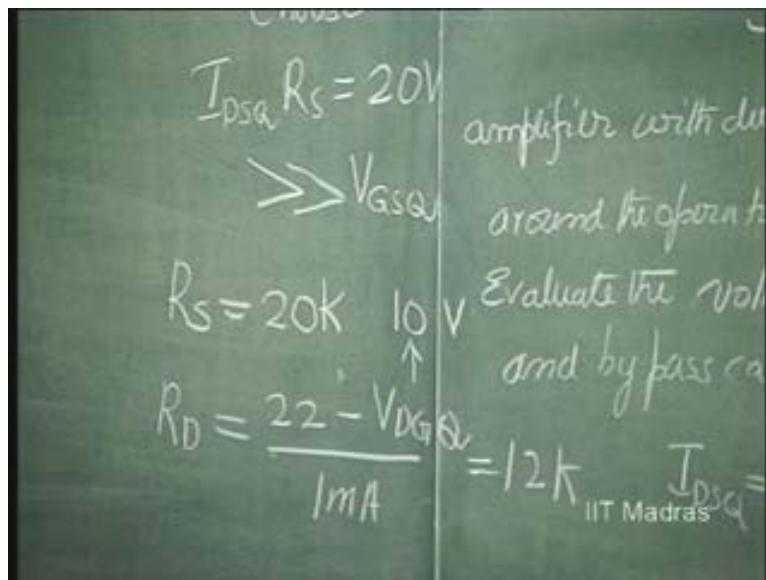 Choose
I_DSQ R_S = 20V
>> V_GSQ
R_S = 20K 10 V
↑
R_D = 22 - V_DGQ / 1mA = 12K
amplifier with
around the
Evaluate the
and bypass
I_DSQ =
IIT Madras